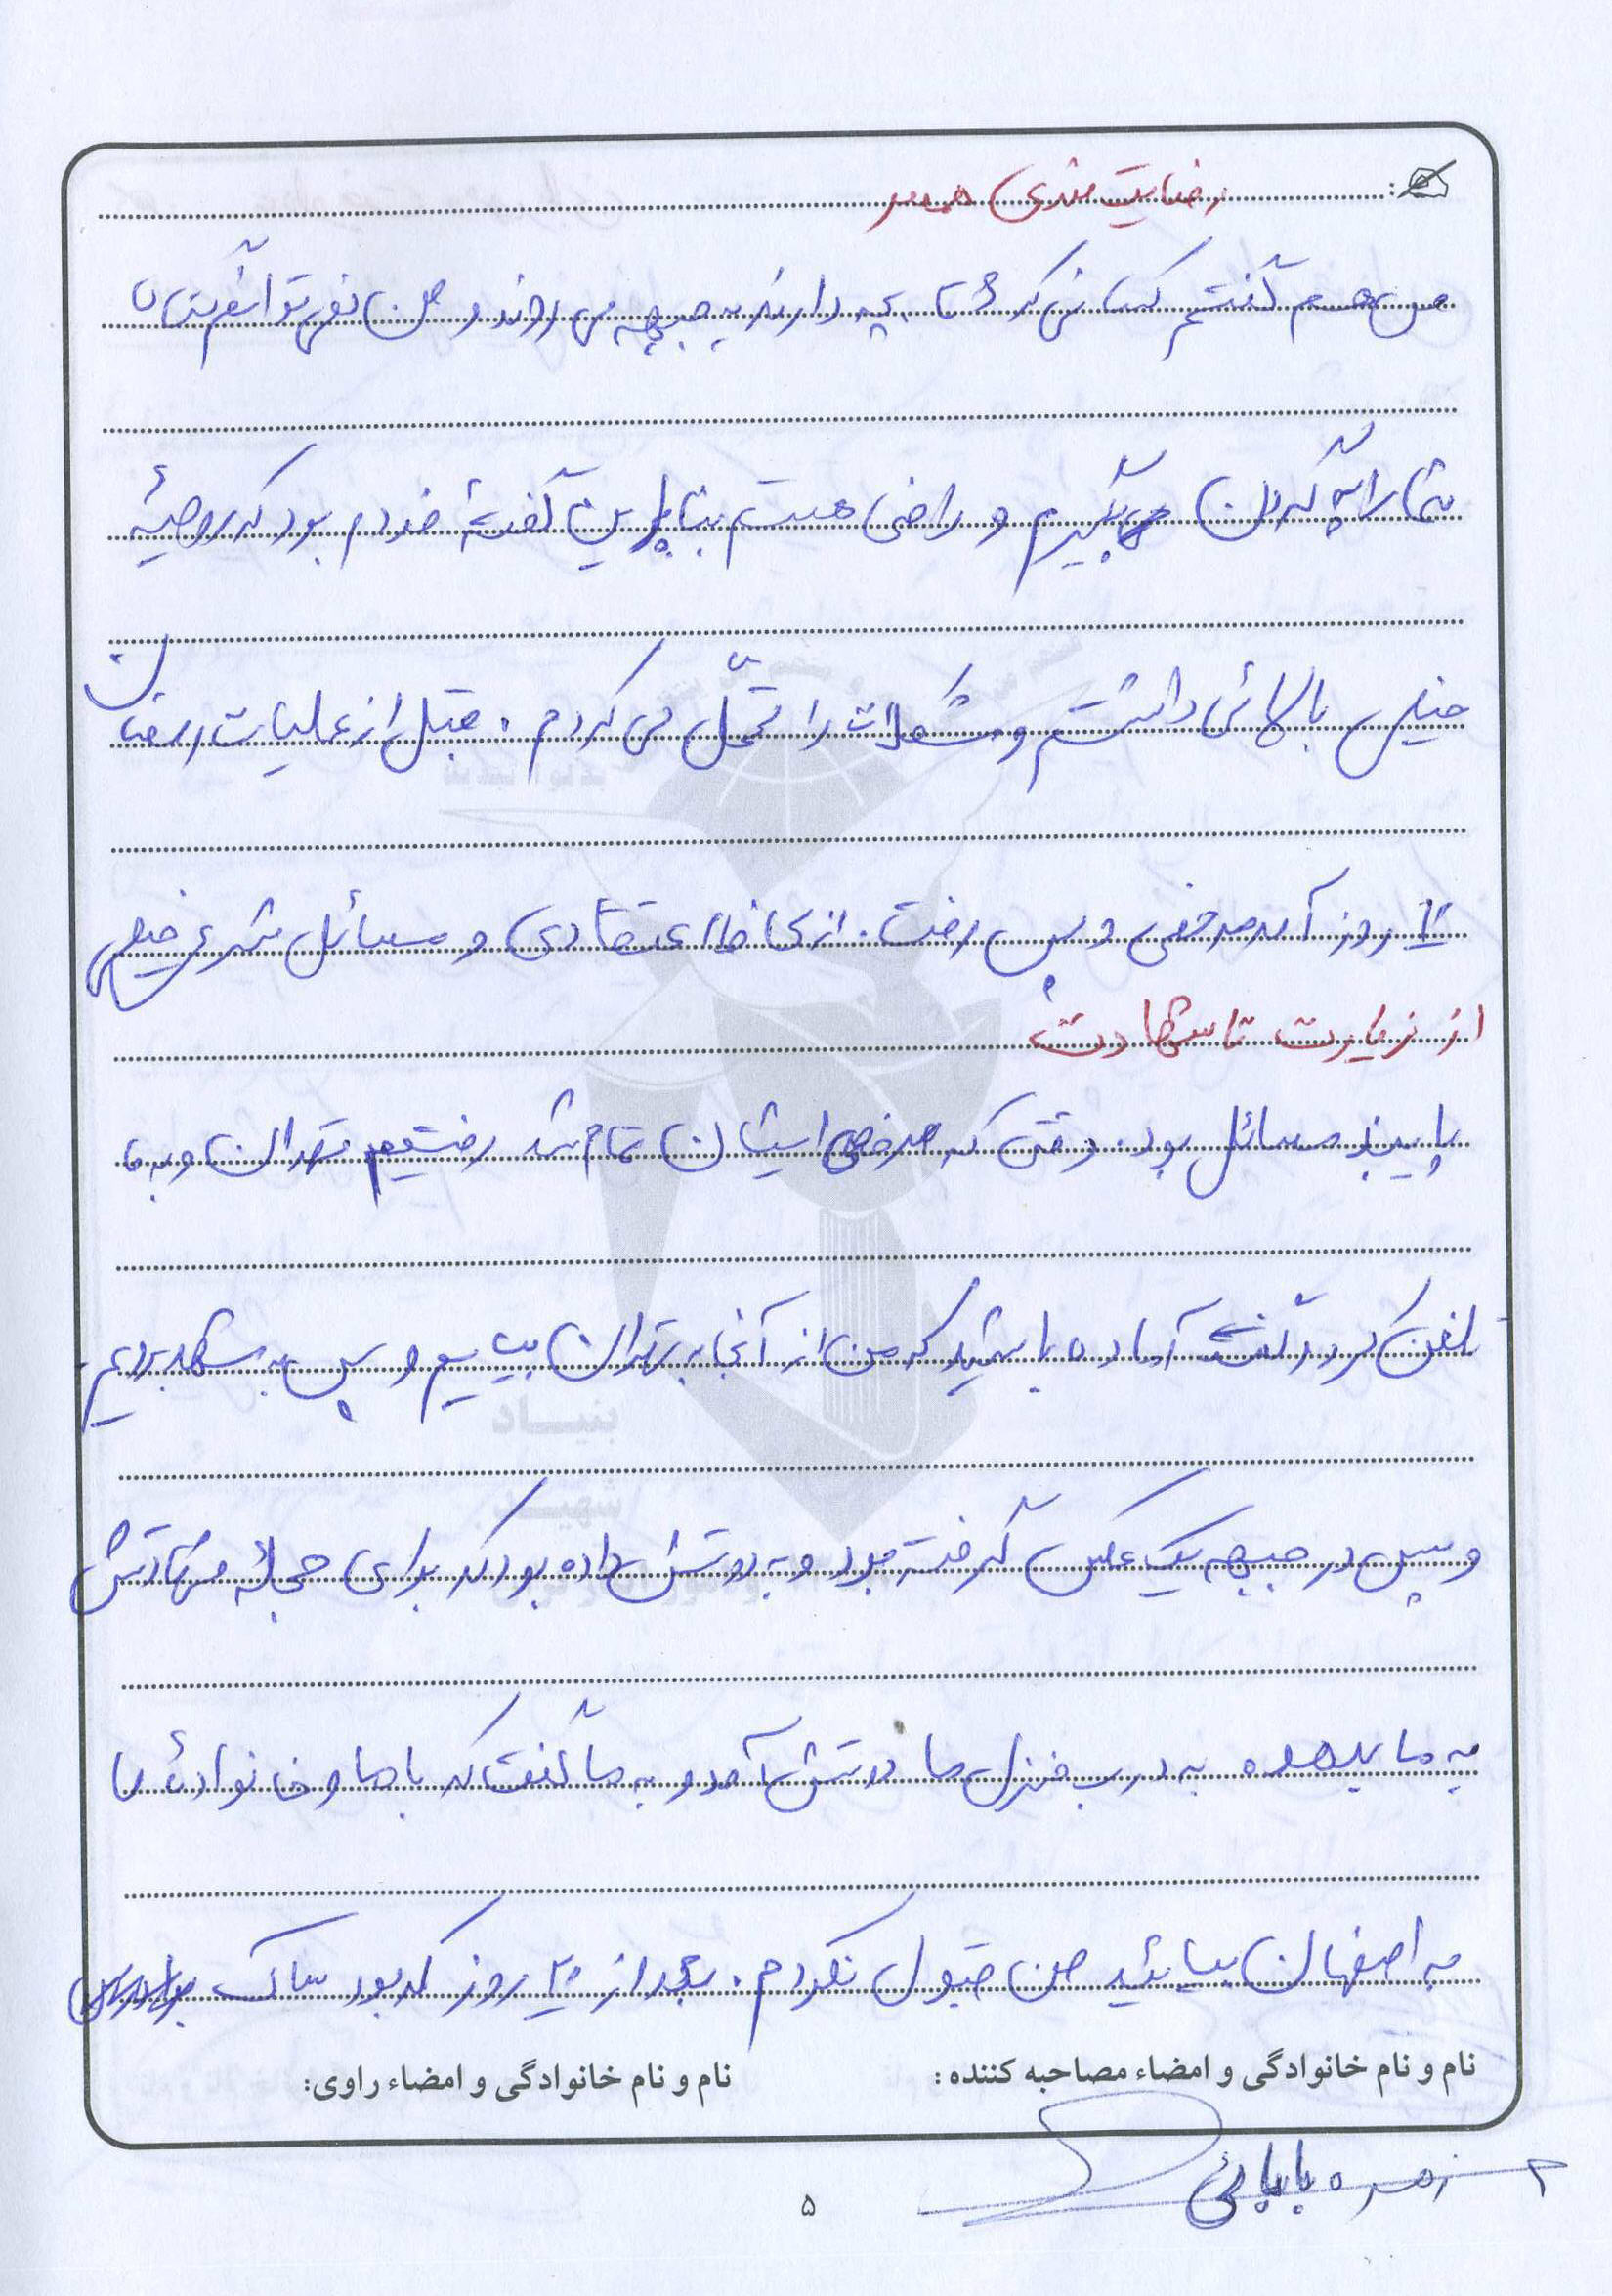 رضایت مندی همسر
من هم گفتم کسانی که ۶ تا بچه دارند به جبهه می روند و من نمی توانم
شما را گردن بگیرم و راضی هستم بنابراین گفته خودم بود که روحیهٔ
خیلی بالائی داشتم و مشکلات را تحمّل می کردم . قبل از عملیات رمضان
روز آمد مرخصی و پس رفت . از لحاظ اعتقادی و مسائل شرعی خیلی
از زیارت تا شهادت
پایبند مسائل بود . وقتی که مرخصی ایشان تمام شد رفتیم تهران و به ما
تلفن کرد و گفت آماده باشید که من از آنجا به تهران بیایم و پس به مشهد برویم .
و سپس در جبهه یک عکس گرفته بود و به دوستش داده بود که برای حجله شهادتش
به ما بدهد به درب منزل ما دوستش آمد و به ما گفت که با ما و خانوادهٔ ما
به اصفهان بیائید من قبول نکردم . بعد از ۲۰ روز که بود ساک
نام و نام خانوادگی و امضاء مصاحبه کننده :
نام و نام خانوادگی و امضاء راوی:
زهره بابائی
۵
بنیاد
شهید